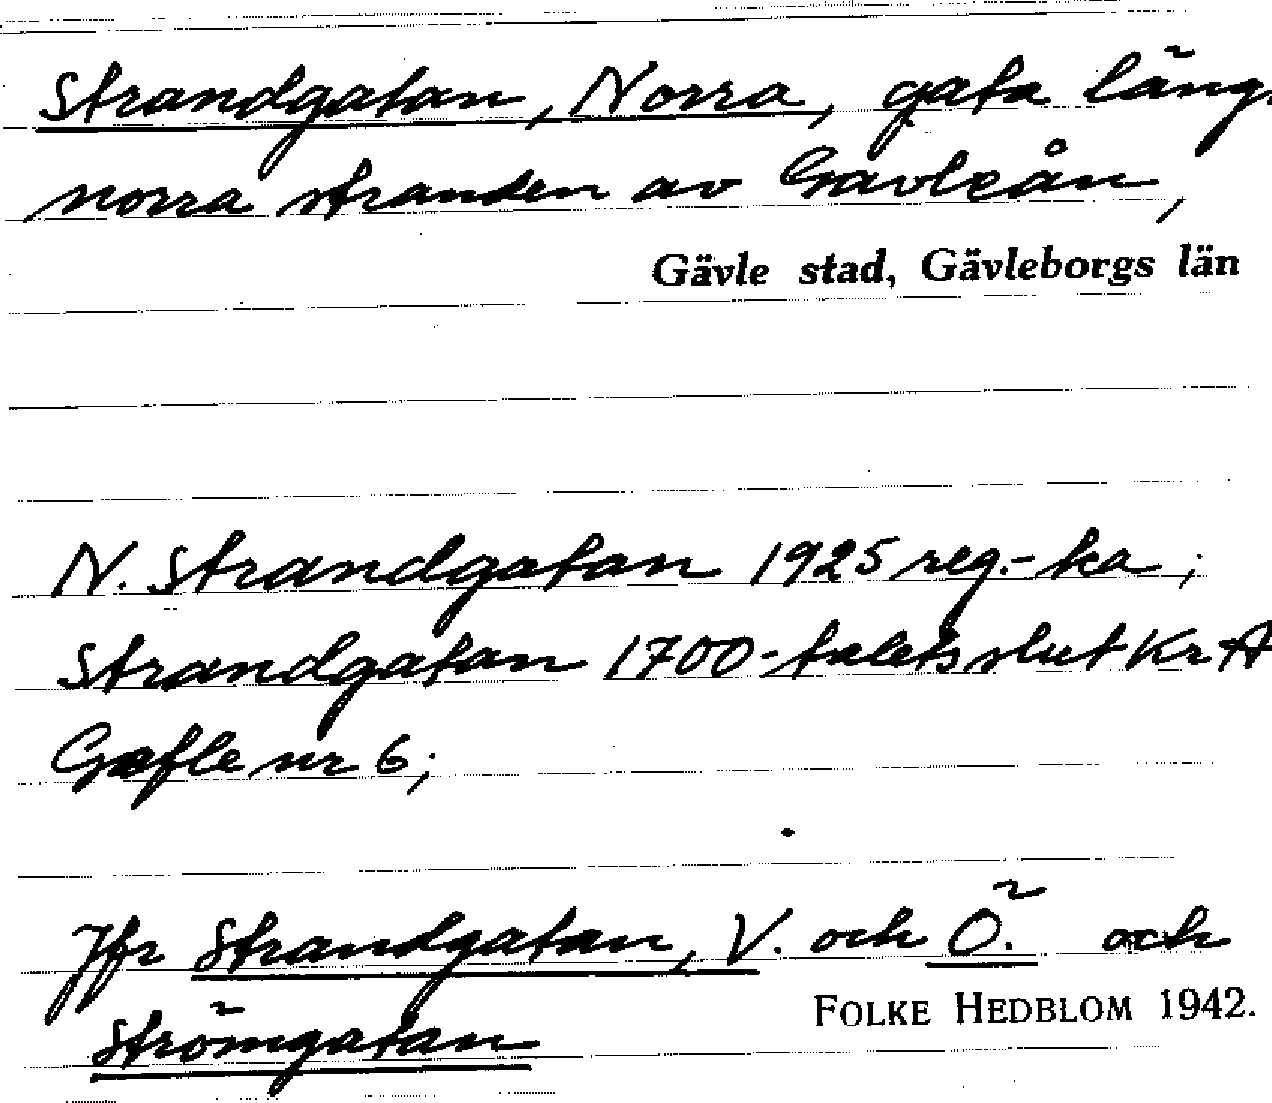 Strandgatan, Norra, gata läng
norra stranden av Gavleån,
Gävle stad, Gävleborgs län
N. Strandgatan 1925 reg.-ka;
Strandgatan 1700-talets slut Kr A
Gefle nr 6;
Jfr Strandgatan, V. och Ö. och
Strömgatan
FOLKE HEDBLOM 1942.